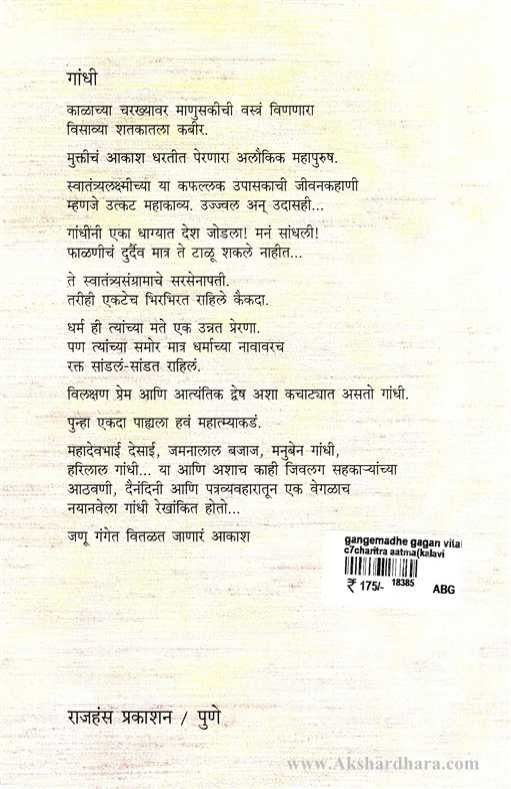 गांधी
काळाच्या चरख्यावर माणुसकीची वस्त्रं विणणारा
विसाव्या शतकातला कबीर.
मुक्तीचं आकाश धरतीत पेरणारा अलौकिक महापुरुष.
स्वातंत्र्यलक्ष्मीच्या या कफल्लक उपासकाची जीवनकहाणी
म्हणजे उत्कट महाकाव्य. उज्ज्वल अन् उदासही...
गांधींनी एका धाग्यात देश जोडला! मनं सांधली!
फाळणीचं दुर्दैव मात्र ते टाळू शकले नाहीत...
ते स्वातंत्र्यसंग्रामाचे सरसेनापती.
तरीही एकटेच भिरभिरत राहिले कैकदा.
धर्म ही त्यांच्या मते एक उन्नत प्रेरणा.
पण त्यांच्या समोर मात्र धर्माच्या नावावरच
रक्त सांडलं-सांडत राहिलं.
विलक्षण प्रेम आणि आत्यंतिक द्वेष अशा कचाट्यात असतो गांधी.
पुन्हा एकदा पाह्यला हवं महात्म्याकडं.
महादेवभाई देसाई, जमनालाल बजाज, मनुबेन गांधी,
हरिलाल गांधी... या आणि अशाच काही जिवलग सहकाऱ्यांच्या
आठवणी, दैनंदिनी आणि पत्रव्यवहारातून एक वेगळाच
नयानवेला गांधी रेखांकित होतो...
जणू गंगेत वितळत जाणारं आकाश
gangemadhe gagan vital
c7charitra aatma(kalavi
₹ 175/- 18385 ABG
राजहंस प्रकाशन / पुणे
www.Akshardhara.com